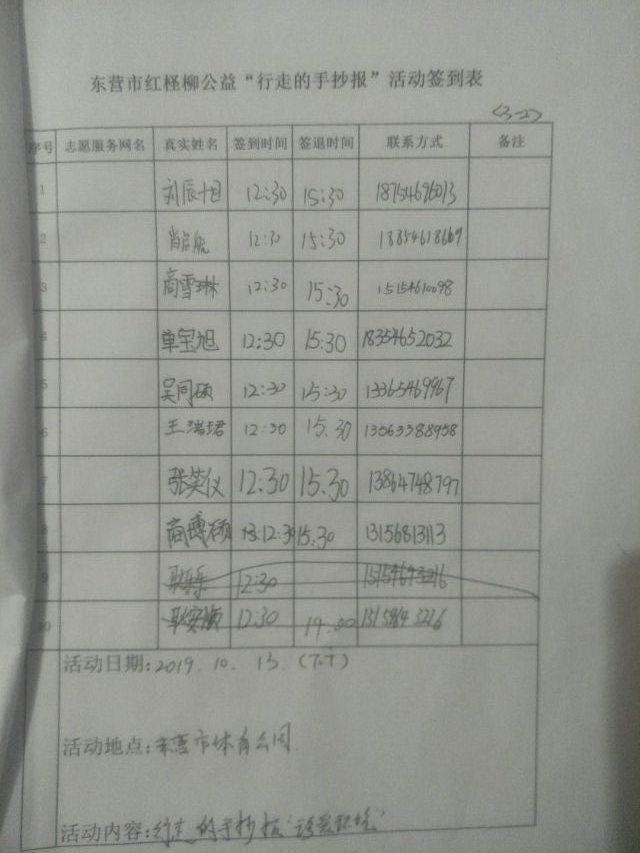 东营市红柽柳公益“行走的手抄报”活动签到表
(3-2)
序号 志愿服务网名 真实姓名 签到时间 签退时间 联系方式 备注
1 刘辰旭 12:30 15:30 18754696013
2 肖启航 12:30 15:30 18854618669
3 商雪琳 12:30 15:30 15154610098
4 单宝旭 12:30 15:30 18354652032
5 吴同硕 12:30 15:30 13365469967
6 王瑞珺 12:30 15.30 13563388958
7 张笑仪 12:30 15.30 13864748797
8 商博硕 12:30 15:30 13156813113
9 12:30 15154643216
10 12:30 19:00
活动日期:2019.10.13.(下午)
活动地点:东营市体育公园
活动内容:行走的手抄报